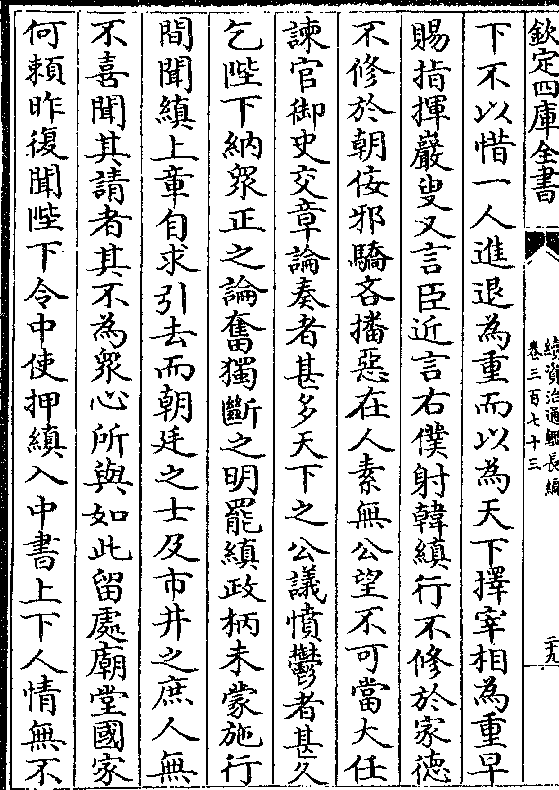 欽定四庫全書
續資治通鑑長編
卷三百七十三
二十九
下不以惜一人進退為重而以為天下擇宰相為重早
賜指揮嚴叟又言臣近言右僕射韓縝行不修於家德
不修於朝佞邪驕吝播惡在人素無公望不可當大任
諫官御史交章論奏者甚多天下之公議憤鬱者甚久
乞陛下納衆正之論奮獨斷之明罷縝政柄未蒙施行
間聞縝上章自求引去而朝廷之士及市井之庶人無
不喜聞其請者其不為衆心所與如此留處廟堂國家
何頼昨復聞陛下令中使押縝入中書上下人情無不